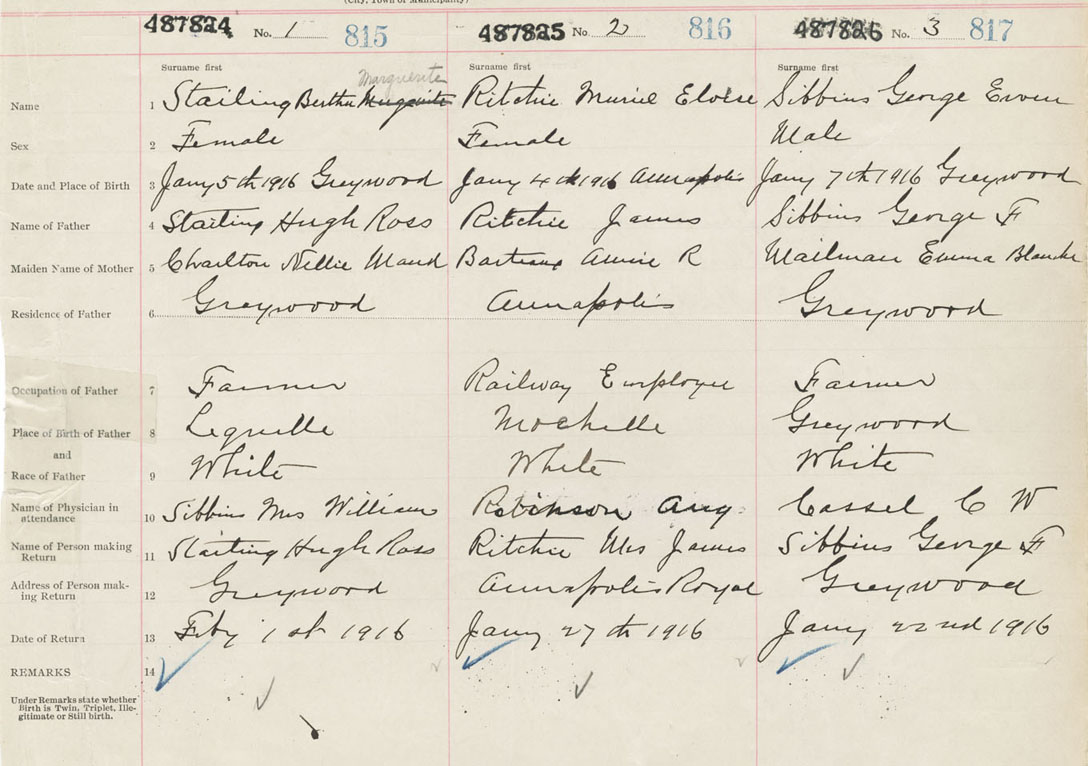 (City, Town or Municipality)
487824 No. 1 815 487825 No. 2 816 487826 No. 3 817
Surname first Surname first Surname first
Marguerite
Name 1 Stailing Bertha Ritchie Muriel Eloise Sibbins George Erven
Sex 2 Female Female Male
Date and Place of Birth 3 Jany 5th 1916 Greywood Jany 4th 1916 Annapolis Jany 7th 1916 Greywood
Name of Father 4 Stailing Hugh Ross Ritchie James Sibbins George F
Maiden Name of Mother 5 Charlton Nellie Maud Annie R Mailman Emma Blanche
Residence of Father 6 Greywood Annapolis Greywood
Occupation of Father 7 Farmer Railway Employee Farmer
Place of Birth of Father 8 Lequille Mochelle Greywood
and
Race of Father 9 White White White
Name of Physician in
attendance 10 Sibbins Mrs William Robinson Aug. Cassel C W
Name of Person making
Return 11 Stailing Hugh Ross Ritchie Mrs James Sibbins George F
Address of Person mak-
ing Return 12 Greywood Annapolis Royal Greywood
Date of Return 13 Feby 1st 1916 Jany 27th 1916 Jany 22nd 1916
REMARKS 14
Under Remarks state whether
Birth is Twin, Triplet, Ille-
gitimate or Still birth.